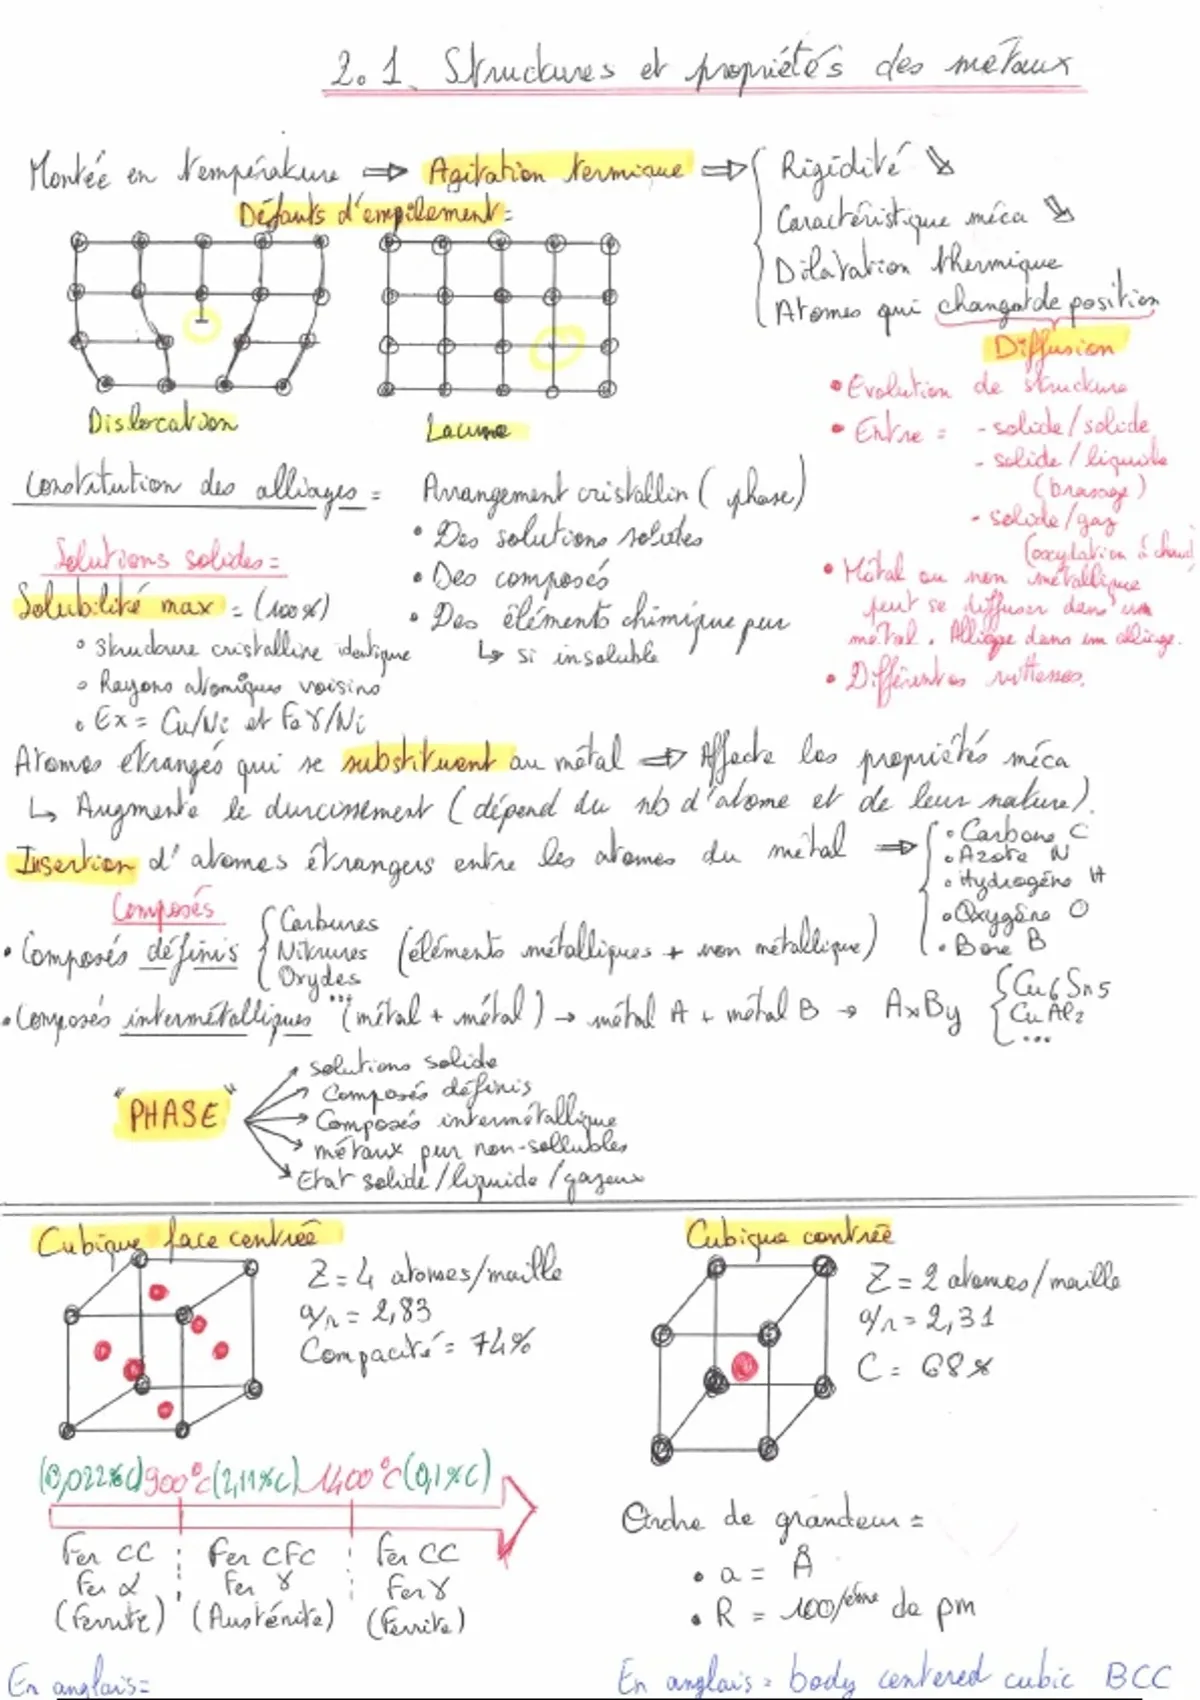 2.1. Structures et propriétés des métaux
Montée en température ⇒ Agitation termique ⇒ { Rigidité ↘
Caractéristique méca ↘
Dilatation thermique
Atomes qui changent de position
Diffusion
Défauts d'empilement =
Dislocation
Lacune
• Evolution de structure
• Entre = - solide/solide
- solide/liquide
(brasage)
- solide/gaz
(oxydation à chaud)
• Métal ou non métallique
peut se diffuser dans un
métal. Alliage dans un alliage.
• Différentes vitesses.
Constitution des alliages = Arrangement cristallin (phase)
• Des solutions solides
• Des composés
• Des éléments chimique pur
↳ si insoluble
Solutions solides =
Solubilité max = (100%)
° Structure cristalline identique
° Rayons atomiques voisins
° Ex = Cu/Ni et Fe γ/Ni
Atomes étrangés qui se substituent au métal ⇒ Affecte les propriétés méca
↳ Augmente le durcissement (dépend du nb d'atome et de leur nature).
Insertion d'atomes étrangers entre les atomes du métal ⇒ { • Carbone C
• Azote N
• Hydrogène H
• Oxygène O
• Bore B
Composés
• Composés définis { Carbures
Nitrures
Oxydes
...
(éléments métalliques + non métallique)
• Composés intermétalliques (métal + métal) → métal A + métal B → AxBy { Cu6Sn5
CuAl2
...
"PHASE"
solutions solide
Composés définis
Composés intermétallique
métaux pur non-sollubles
Etat solide/liquide/gazeux
Cubique face centrée
Z = 4 atomes/maille
a/r = 2,83
Compacité = 74%
Cubique centrée
Z = 2 atomes/maille
a/r = 2,31
C = 68%
(0,022%C) 900°C (2,11%C) 1400°C (0,1%C)
Fer CC Fer CFC Fer CC
Fer α Fer γ Fer γ
(Ferrite) (Austénite) (Ferrite)
Ordre de grandeur =
• a = Å
• R = 100/ème de pm
En anglais =
En anglais = body centered cubic BCC